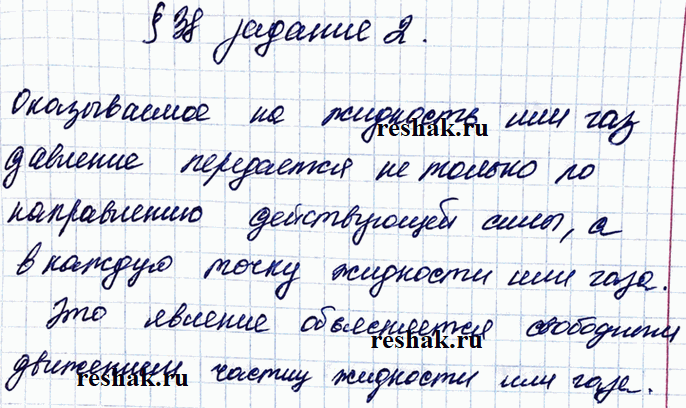 § 38 задание 2.
Оказываемое на жидкость или газ
reshak.ru
давление передается не только по
направлению действующей силы, а
в каждую точку жидкости или газа.
Это явление объясняется свободным
reshak.ru
движением частиц жидкости или газа.
reshak.ru